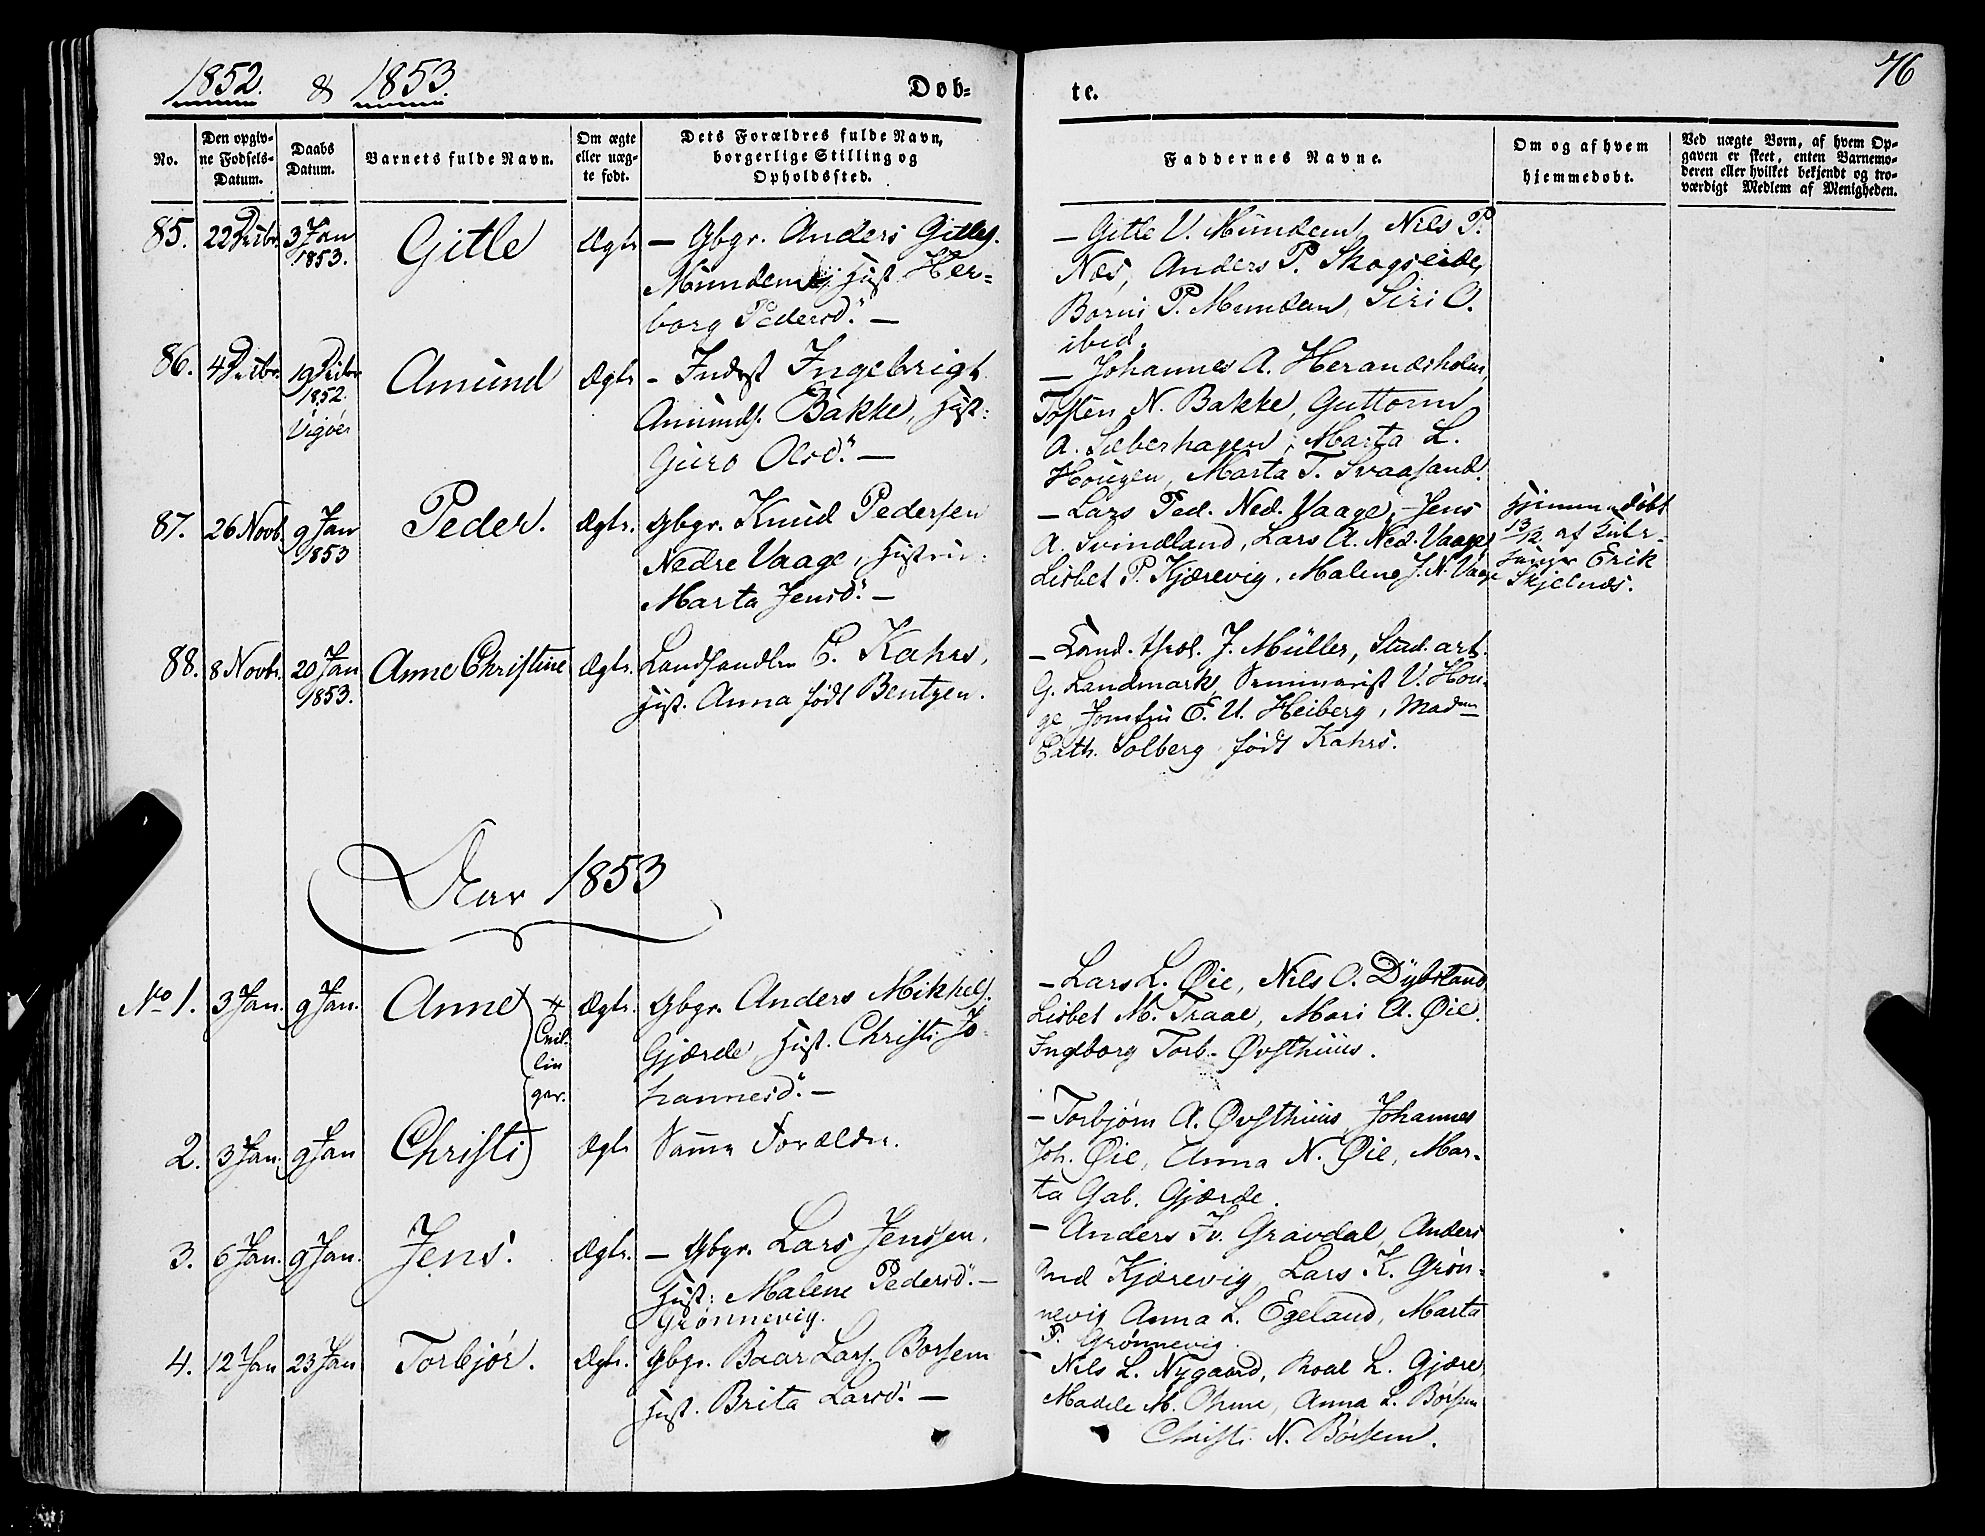 1852. & 1853.
Døb-
te.
76
No.
Den opgiv-
ne Fødsels-
Datum.
Daabs
Datum.
Barnets fulde Navn.
Om ægte
eller uæg-
te født.
Dets Forældres fulde Navn,
borgerlige Stilling og
Opholdssted.
Faddernes Navne.
Om og af hvem
hjemmedøbt.
Ved uægte Børn, af hvem Op-
gaven er skeet, enten Barnemo-
deren eller hvilket bekjendt og tro-
værdigt Medlem af Menigheden.
85. 22 Decbr. 3 Jan 1853. Gitle Ægte
– Gbgr. Anders Gitles.
Mundem Hust Her-
borg Pedersd. –
– Gitle V. Mundem, Nils P.
Næs, Anders P. Skogseide,
Børni P. Mundem, Siri O.
ibid.
86. 4 Decbr. 19 Decbr 1852. Vigøer Amund Ægte
– Indst Ingebrigt
Amunds. Bakke, Hust:
Guro Olsd. –
– Johannes A. Herandsholm,
Tosten N. Bakke, Guttorm
A. Sæberhagen, Marta L.
Hougen, Marta T. Svaasand.
87. 26 Novb. 9 Jan 1853 Peder. Ægte.
Gbgr. Knud Pedersen
Nedre Vaage, Hustru:
Marta Jensd. –
– Lars Ped. Ned. Vaage, Jens
A. Svindland, Lars A. Ned. Vaage,
Lisbet P. Kjærevig, Malene J. N. Vaage
Hjemmedøbt
13/12 af
Erik
Skjelnæs.
88. 8 Novbr. 20 Jan 1853. Anne Christine Ægte.
Landhandler C. Kahrs,
Hust. Anna født Bentzen.
– Cand. theol. J. Müller, Stud. art.
G. Landmark, Seminarist V. Hou-
ge, Jomfru E. U. Heiberg, Madm
Cath. Solberg født Kahrs.
Aar 1853
No 1. 3 Jan. 9 Jan. Anne Ægte.
Tvil-
lin
ger.
Gbgr. Anders Mikkels.
Gjærde, Hust. Christi Jo-
hannesd. –
– Lars L. Øie, Nils O. Dybsland
Lisbet M. Traae, Mari A. Øie.
Ingborg Torb. Øvsthuus.
2. 3 Jan. 9 Jan Christi Ægte
Samme Forældre.
– Torbjørn A. Øvsthuus, Johannes
Joh. Øie, Anna N. Øie, Mar-
ta Gab. Gjærde.
3. 6 Jan. 9 Jan. Jens. Ægte.
– Gbgr. Lars Jensen,
Hust: Malene Pedersd. –
Grønnevig.
– Anders Iv. Gravdal, Anders
Kjærevig, Lars K. Grøn-
nevig Anna L. Egeland, Marta
P. Grønnevig.
4. 12 Jan 23 Jan Torbjør. Ægte.
Gbgr. Baar Lars. Børsem
Hust. Brita Larsd. –
– Nils L. Nygaard, Roal L. Gjære,
Madele M. Ohme, Anna L. Børsem
Christi N. Børsem.